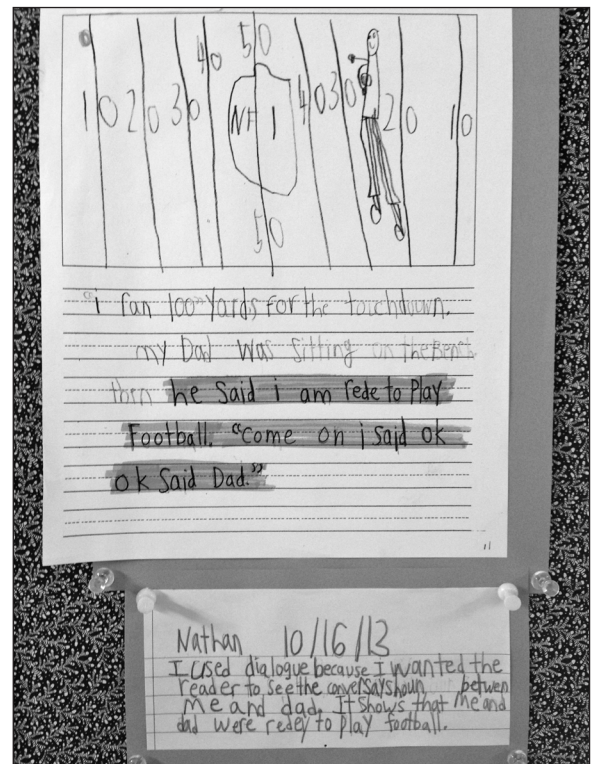 0
50
40
10 20 30 NFl 40 30 20 10
50
"i ran 100 Yards For the touchdown.
my Dad was sitting on the Bench
then he Said i am rede to Play
Football. "Come on i Said ok
ok Said Dad."
11
Nathan 10/16/13
I used dialogue because I wanted the
reader to see the conversayshoun betwen
me and dad. It shows that Me and
dad were redey to play football.